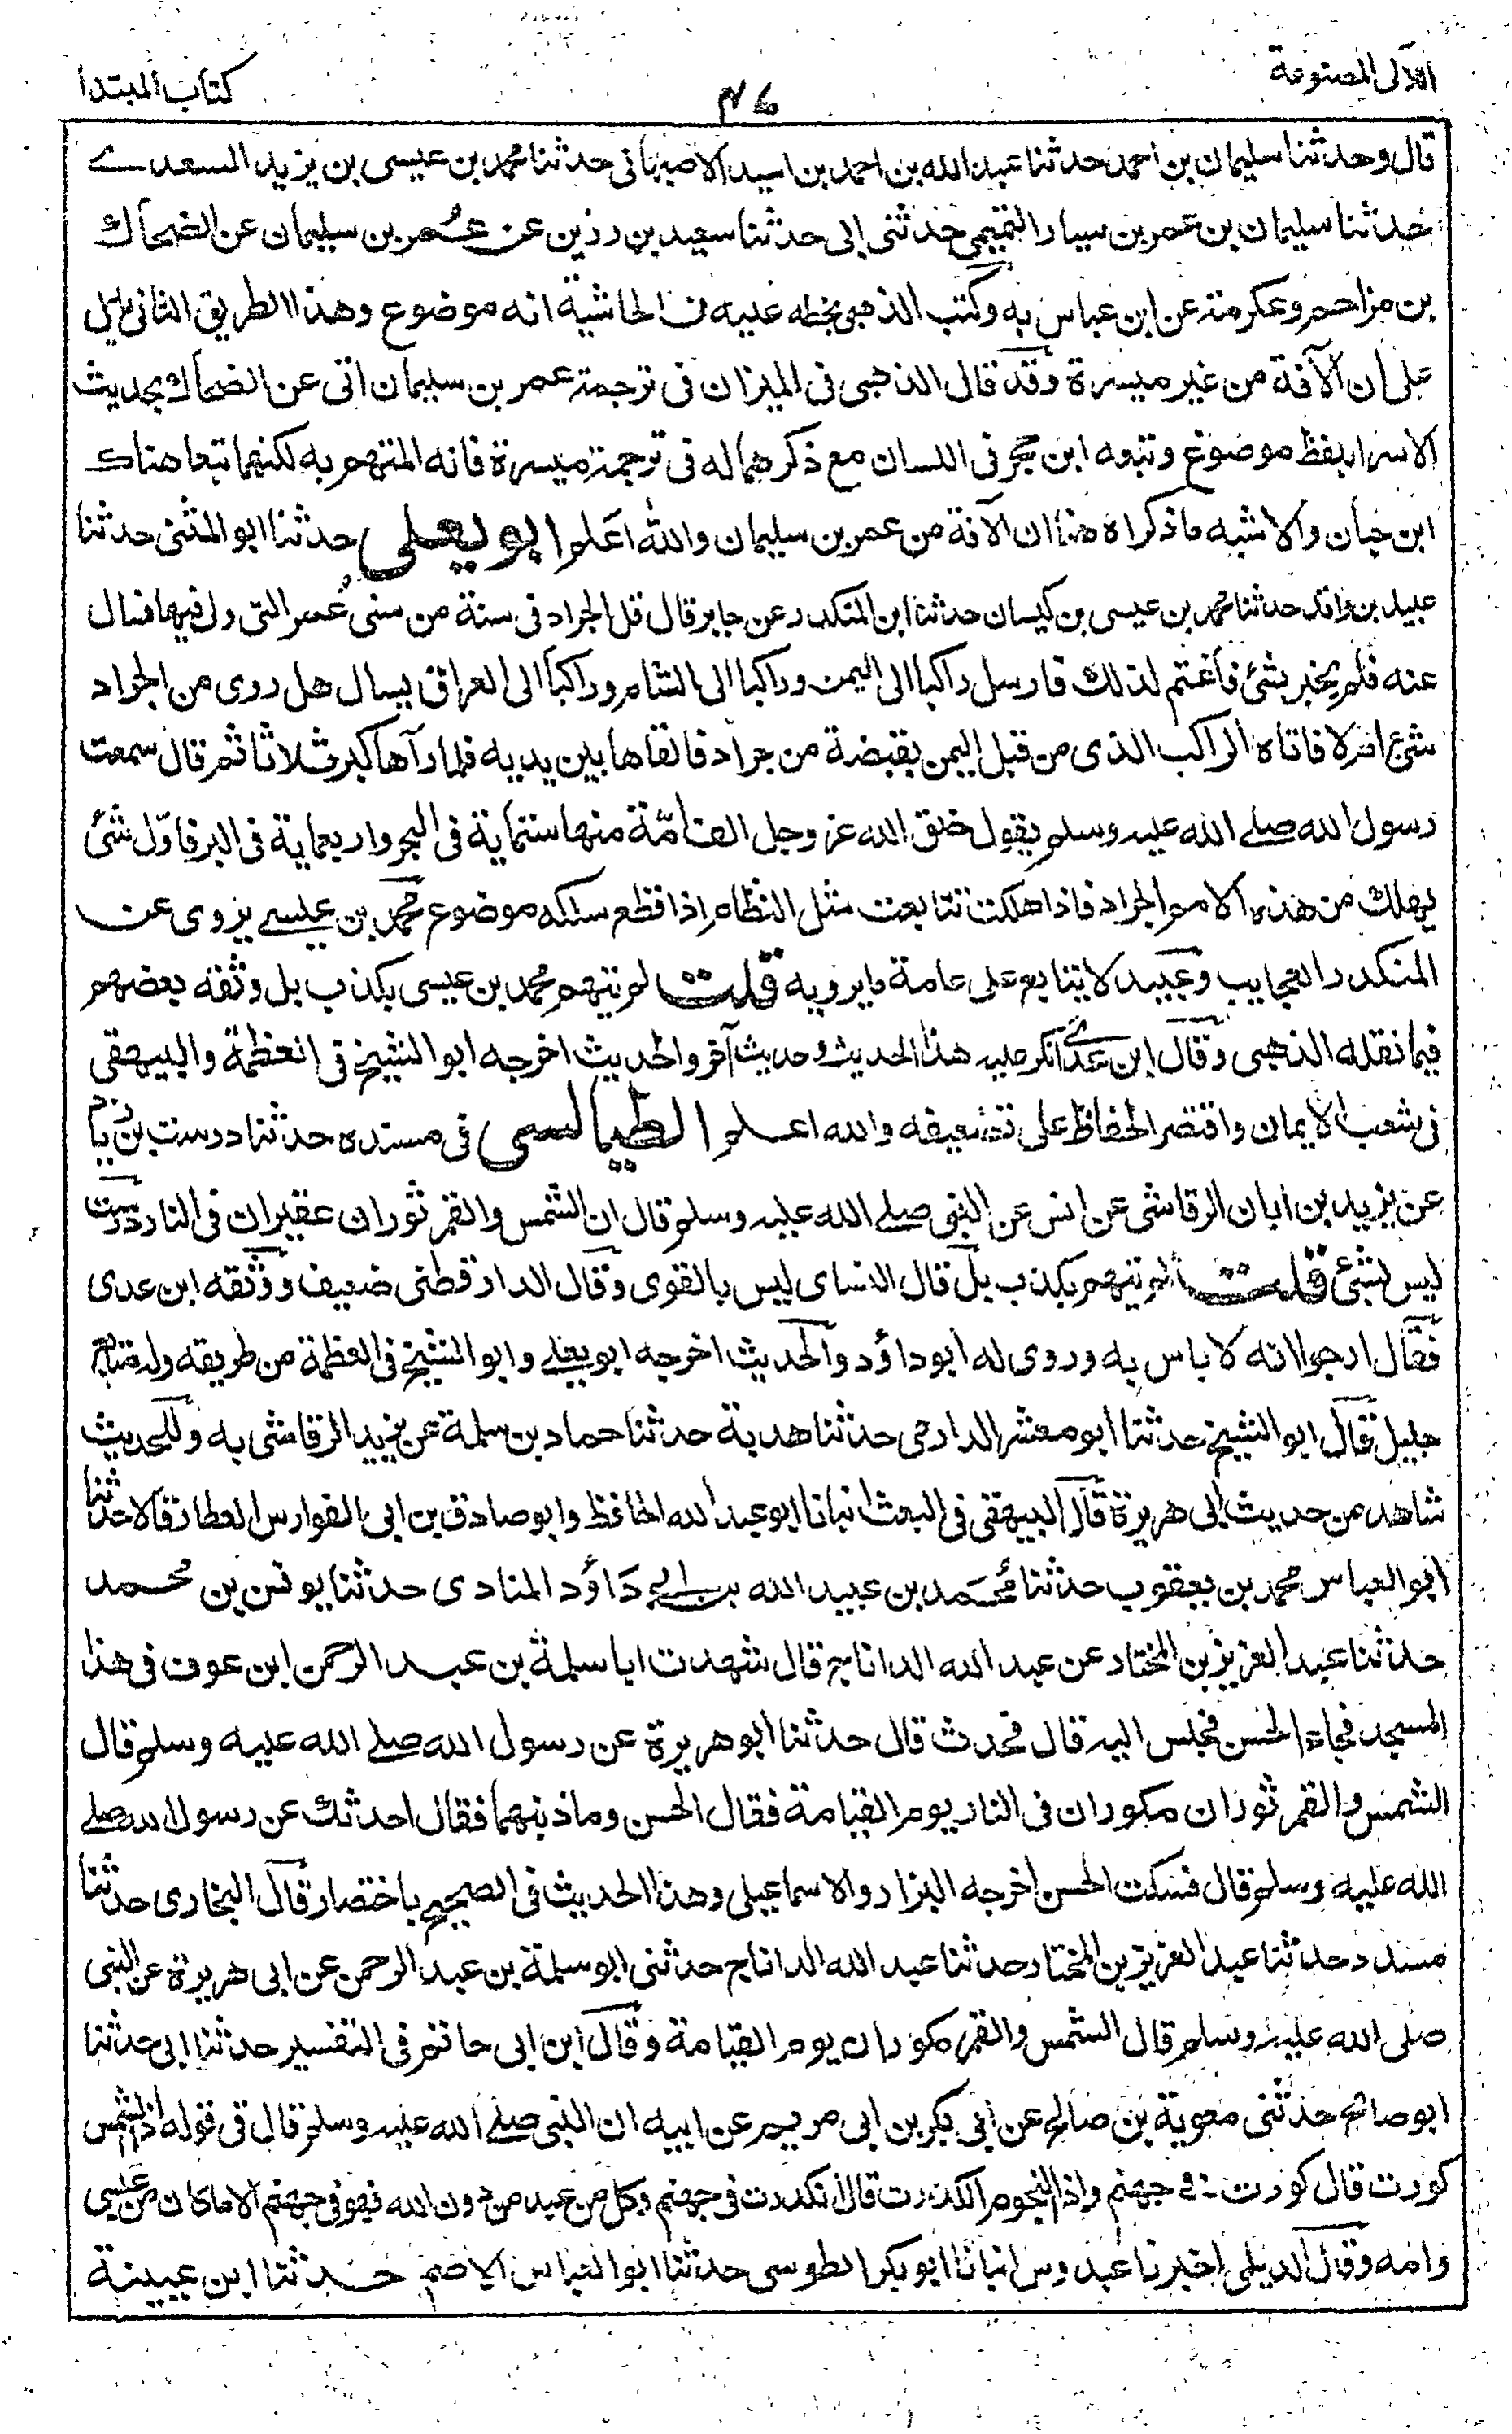 اللآلى المصنوعة
كتاب المبتدا
قال وحدثنا سليمان بن احمد حدثنا عبد الله بن احمد بن اسيد الاصبهانى حدثنا محمد بن عيسى بن يزيد السعدے
حدثنا سليمان بن عمر بن سيار التميمى حدثنى ابى حدثنا سعيد بن رزين عن عمر بن سليمان عن الضحاك
بن مزاحم وعكرمة عن ابن عباس به وكتب الذهبى بخطه عليه فى الحاشية انه موضوع وهذا الطريق الثانى يدل
على ان الآفة من غير ميسرة وقد قال الذهبى فى الميزان فى ترجمة عمر بن سليمان اتى عن الضحاك بحديث
الاسرا بلفظ موضوع وتبعه ابن حجر فى اللسان مع ذكرهما له فى ترجمة ميسرة فانه المتهم به لكنهما تبعا هناك
ابن حبان والاشبه ما ذكراه هنا ان الآفة من عمر بن سليمان والله اعلم ابو يعلى حدثنا ابو المثنى حدثنا
عبيد بن واقد حدثنا محمد بن عيسى بن كيسان حدثنا ابن المنكدر عن جابر قال قل الجراد فى سنة من سنى عمر التى ولى فيها فسال
عنه فلم يخبر بشئ فاغتم لذلك فارسل راكبا الى اليمن وراكبا الى الشام وراكبا الى العراق يسال هل روى من الجراد
شئ ام لا فاتاه الراكب الذى من قبل اليمن بقبضة من جراد فالقاها بين يديه فلما رآها كبر ثلاثا ثم قال سمعت
رسول الله صلے الله عليه وسلم يقول خلق الله عز وجل الف امّة منها ستماية فى البحر واربعماية فى البر فاوّل شئ
يهلك من هذه الامم الجراد فاذا هلكت تتابعت مثل النظام اذا قطع سلكه موضوع محمد بن عيسے يروى عن
المنكدر العجايب وعبيد لا يتابع على عامة ما يرويه قلت لم يتهم محمد بن عيسى بكذب بل وثقه بعضهم
فيما نقله الذهبى وقال ابن عدے انكر عليه هذا الحديث وحديث آخر والحديث اخرجه ابو الشيخ فى العظمة والبيهقى
فى شعب الايمان واقتصر الحفاظ على تضعيفه والله اعلم الطيالسى فى مسنده حدثنا درست بن زياد
عن يزيد بن ابان الرقاشى عن انس عن النبى صلے الله عليه وسلم قال ان الشمس والقمر ثوران عقيران فى النار درست
ليس بشئ قلت لم يتهم بكذب بل قال النساى ليس بالقوى وقال الدارقطنى ضعيف ووثقه ابن عدى
فقال ارجو انه لا باس به وروى له ابو داؤد والحديث اخرجه ابو يعلے وابو الشيخ فى العظمة من طريقه وله متابع
جليل قال ابو الشيخ حدثنا ابو معشر الدارمى حدثنا هدبة حدثنا حماد بن سلمة عن يزيد الرقاشى به وللحديث
شاهد من حديث ابى هريرة قال البيهقى فى البعث انبانا ابو عبد الله الحافظ وابو صادق بن ابى الفوارس العطار قالا حدثنا
ابو العباس محمد بن يعقوب حدثنا محمد بن عبيد الله بن ابى داؤد المنادى حدثنا يونس بن محمد
حدثنا عبد العزيز بن المختار عن عبد الله الداناج قال شهدت ابا سلمة بن عبد الرحمن ابن عوف فى هذا
المسجد فجاء الحسن فجلس اليه قال فحدث قال حدثنا ابو هريرة عن رسول الله صلے الله عليه وسلم قال
الشمس والقمر ثوران مكوران فى النار يوم القيامة فقال الحسن وما ذنبهما فقال احدثك عن رسول الله صلے
الله عليه وسلم قال فسكت الحسن اخرجه البزار والاسماعيلى وهذا الحديث فى الصحيح باختصار قال البخارى حدثنا
مسدد حدثنا عبد العزيز بن المختار حدثنا عبد الله الداناج حدثنى ابو سلمة بن عبد الرحمن عن ابى هريرة عن النبى
صلى الله عليه وسلم قال الشمس والقمر مكوران يوم القيامة وقال ابن ابى حاتم فى التفسير حدثنا ابى حدثنا
ابو صالح حدثنى معوية بن صالح عن ابى بكر بن ابى مريم عن ابيه ان النبى صلے الله عليه وسلم قال فى قوله اذا الشمس
كورت قال كورت فى جهنم واذا النجوم انكدرت قال انكدرت فى جهنم وكل من عبد من دون الله فهو فى جهنم الا ما كان من عيسى
وامه وقال الديلمى اخبرنا عبدوس انبانا ابو بكر الطوسى حدثنا ابو العباس الاصم حدثنا ابن عيينة